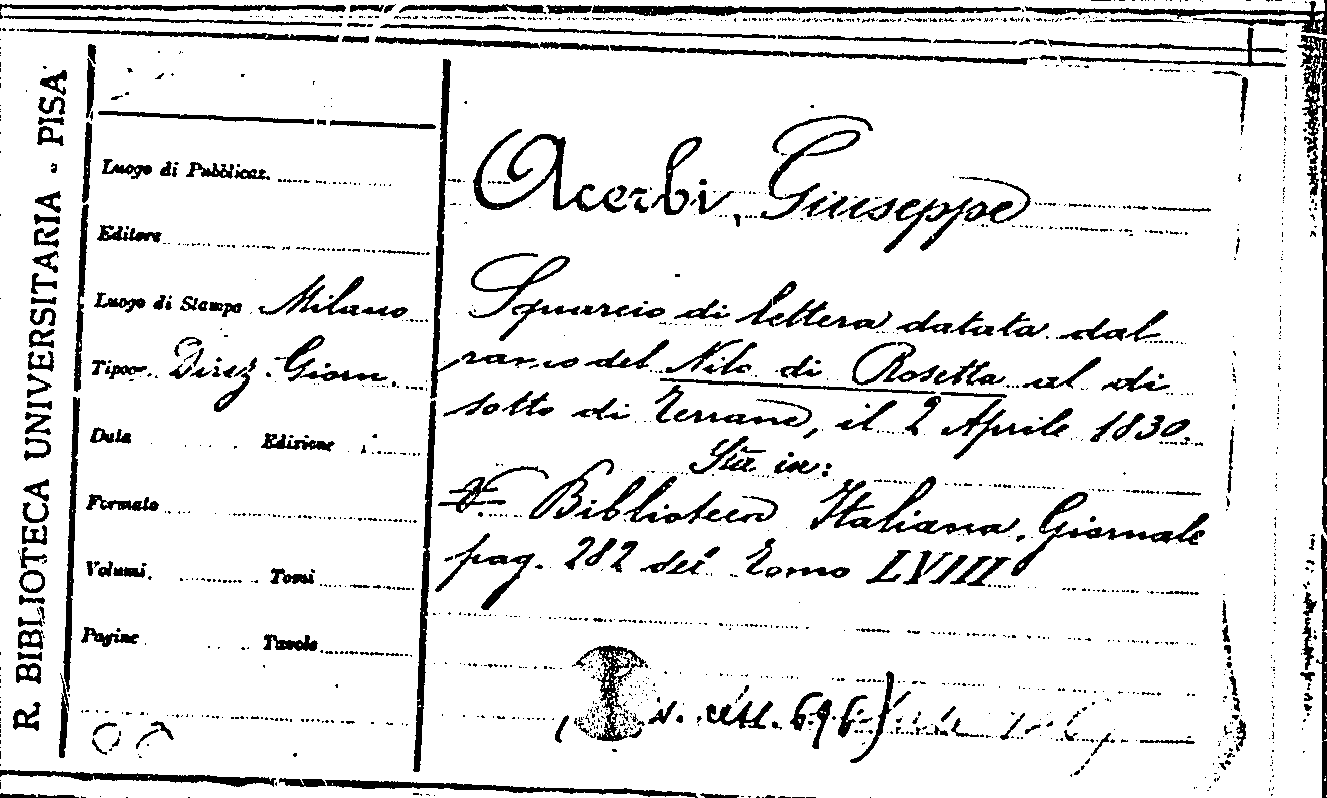 R. BIBLIOTECA UNIVERSITARIA - PISA
Luogo di Pubblicaz.
Editore
Luogo di Stampa Milano
Tipogr. Direz. Giorn.
Data Edizione
Formato
Volumi. Tomi
Pagine Tavole
Acerbi, Giuseppe
Squarcio di lettera datata dal
ramo del Nilo di Rosetta al di
sotto di Terrane, il 2 Aprile 1830.
Sta in:
V. Biblioteca Italiana, Giornale
pag. 282 del Tomo LVIII
696)